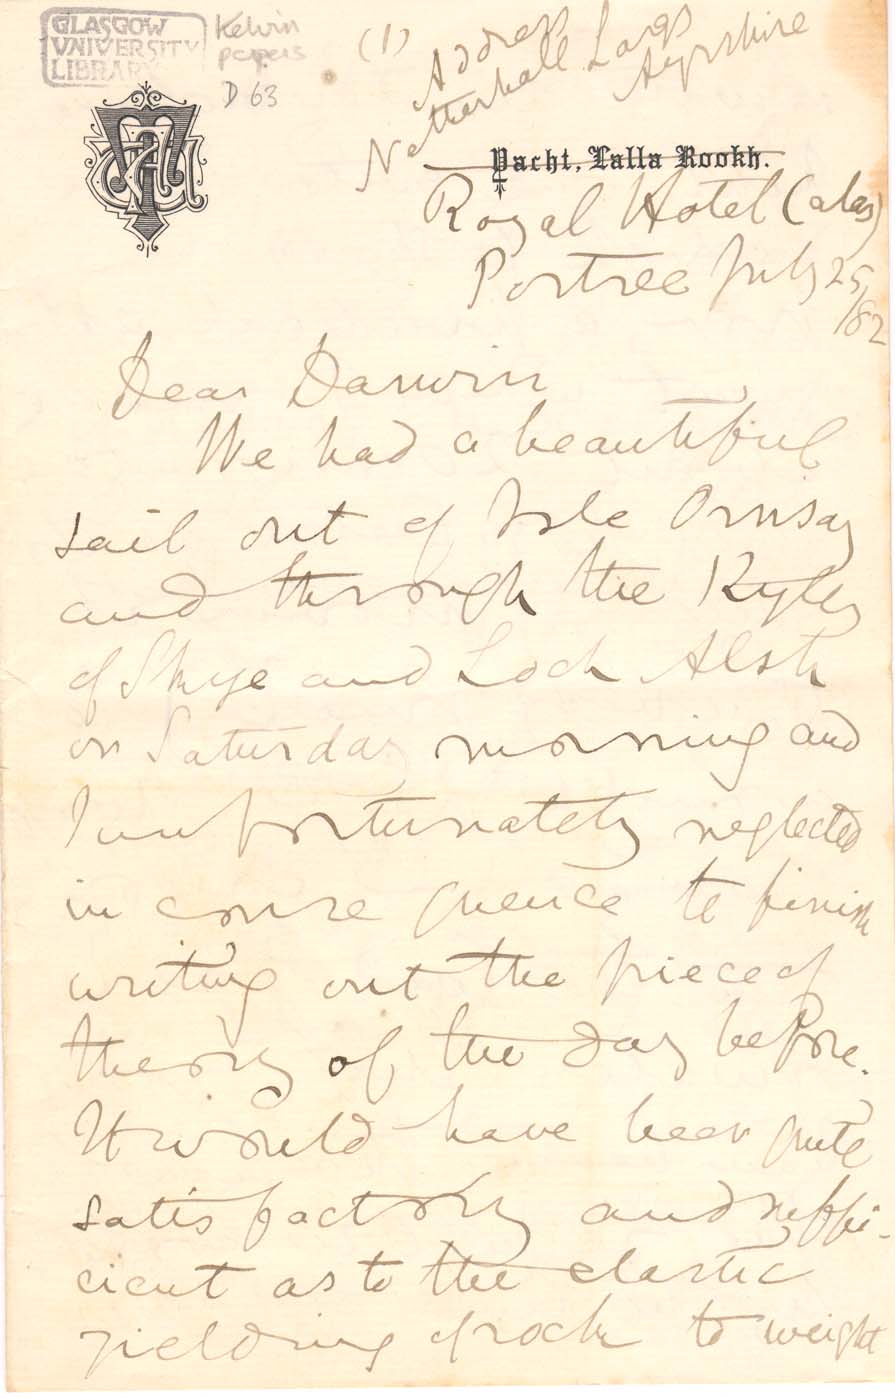 GLASGOW
UNIVERSITY
LIBRARY
Kelvin
papers
D 63
(1)
Address
Netherhall Largs
Ayrshire
Yacht, Lalla Rookh.
Royal Hotel (alas)
Portree July 25
/82
Dear Darwin
We had a beautiful
sail out of Isle Ornsay
and through the Kyles
of Skye and Loch Alsh
on Saturday morning and
I unfortunately neglected
in conse quence to finish
writing out the piece of
theory of the day before.
It would have been quite
satisfactory and suffi-
cient as to the elastic
yielding of rock to weight